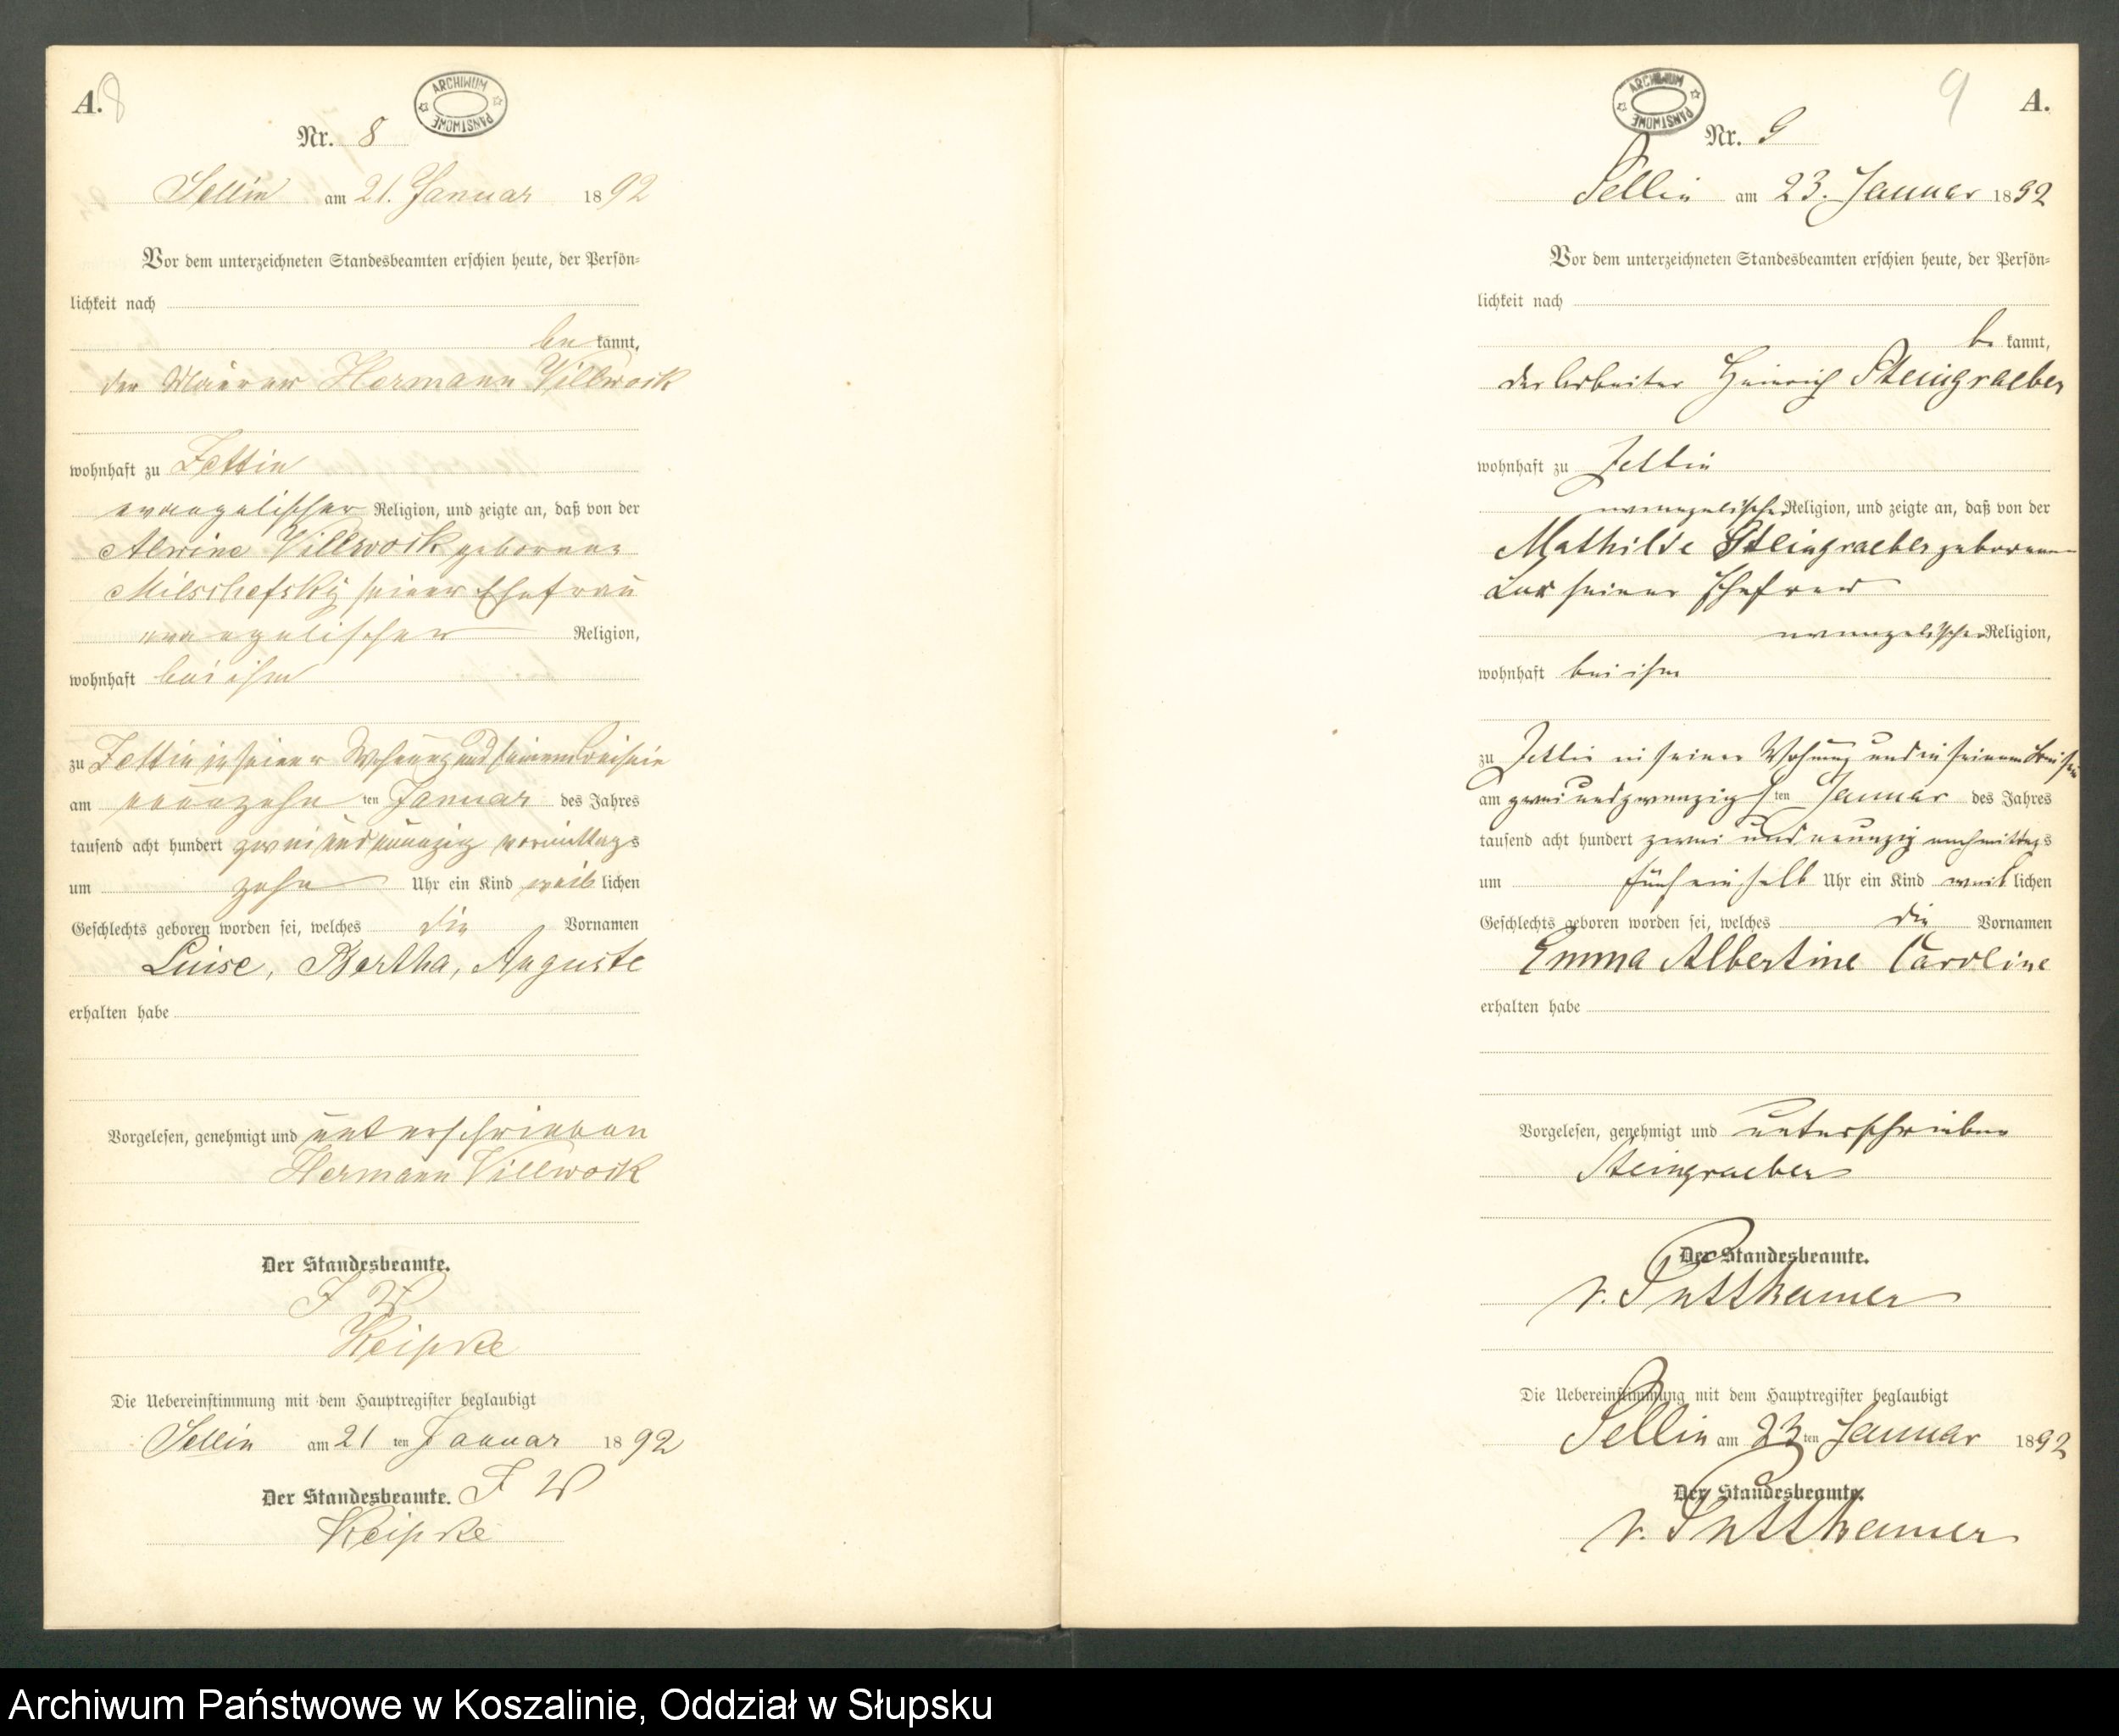 A. 8
ARCHIWUM PAŃSTWOWE
Nr. 8
Sellin am 21. Januar 1892
Vor dem unterzeichneten Standesbeamten erschien heute, der Persön-
lichkeit nach
be kannt,
der Maurer Hermann Villwock
wohnhaft zu Zettin
evangelischer Religion, und zeigte an, daß von der
Alwine Villwock geborenen
Milschefsky seiner Ehefrau
evangelischer Religion,
wohnhaft bei ihm
zu Zettin in seiner Wohnung und seinem Beisein
am neunzehn ten Januar des Jahres
tausend acht hundert zwei und neunzig vormittags
um zehn Uhr ein Kind weib lichen
Geschlechts geboren worden sei, welches die Vornamen
Luise, Bertha, Auguste
erhalten habe
Vorgelesen, genehmigt und unterschrieben
Hermann Villwock
Der Standesbeamte.
I W
Keipke
Die Uebereinstimmung mit dem Hauptregister beglaubigt
Sellin am 21 ten Januar 1892
Der Standesbeamte. I W
Keipke
9 A.
ARCHIWUM PAŃSTWOWE
Nr. 9
Sellin am 23. Januar 1892
Vor dem unterzeichneten Standesbeamten erschien heute, der Persön-
lichkeit nach
be kannt,
der Arbeiter Heinrich Steingraeber
wohnhaft zu Zettin
evangelischer Religion, und zeigte an, daß von der
Mathilde Steingraeber geborenen
seiner Ehefrau
evangelischer Religion,
wohnhaft bei ihm
zu Zettin in seiner Wohnung und in seinem Beisein
am zwei und zwanzigs ten Januar des Jahres
tausend acht hundert zwei und neunzig nachmittags
um fünf ein halb Uhr ein Kind weib lichen
Geschlechts geboren worden sei, welches die Vornamen
Emma Albertine Caroline
erhalten habe
Vorgelesen, genehmigt und unterschrieben
Steingraeber
Der Standesbeamte.
v. Puttkamer
Die Uebereinstimmung mit dem Hauptregister beglaubigt
Sellin am 23 ten Januar 1892
Der Standesbeamte.
v. Puttkamer
Archiwum Państwowe w Koszalinie, Oddział w Słupsku